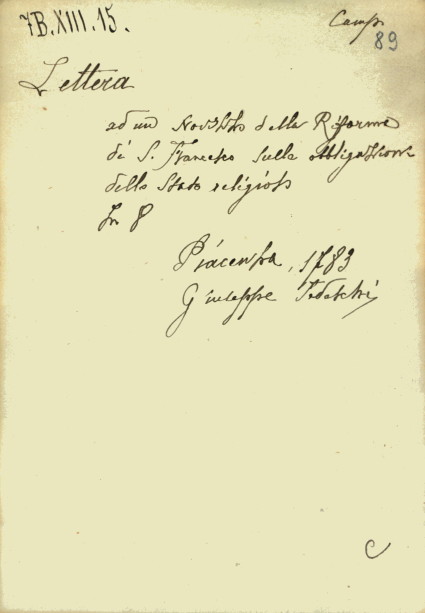 7B.XIII.15.
Camp.
89
Lettera
ad un Novizio della Riforma
di S. Francesco sulle obbligazioni
dello Stato religioso
In 8
Piacenza, 1783
Giuseppe Tedeschi
C